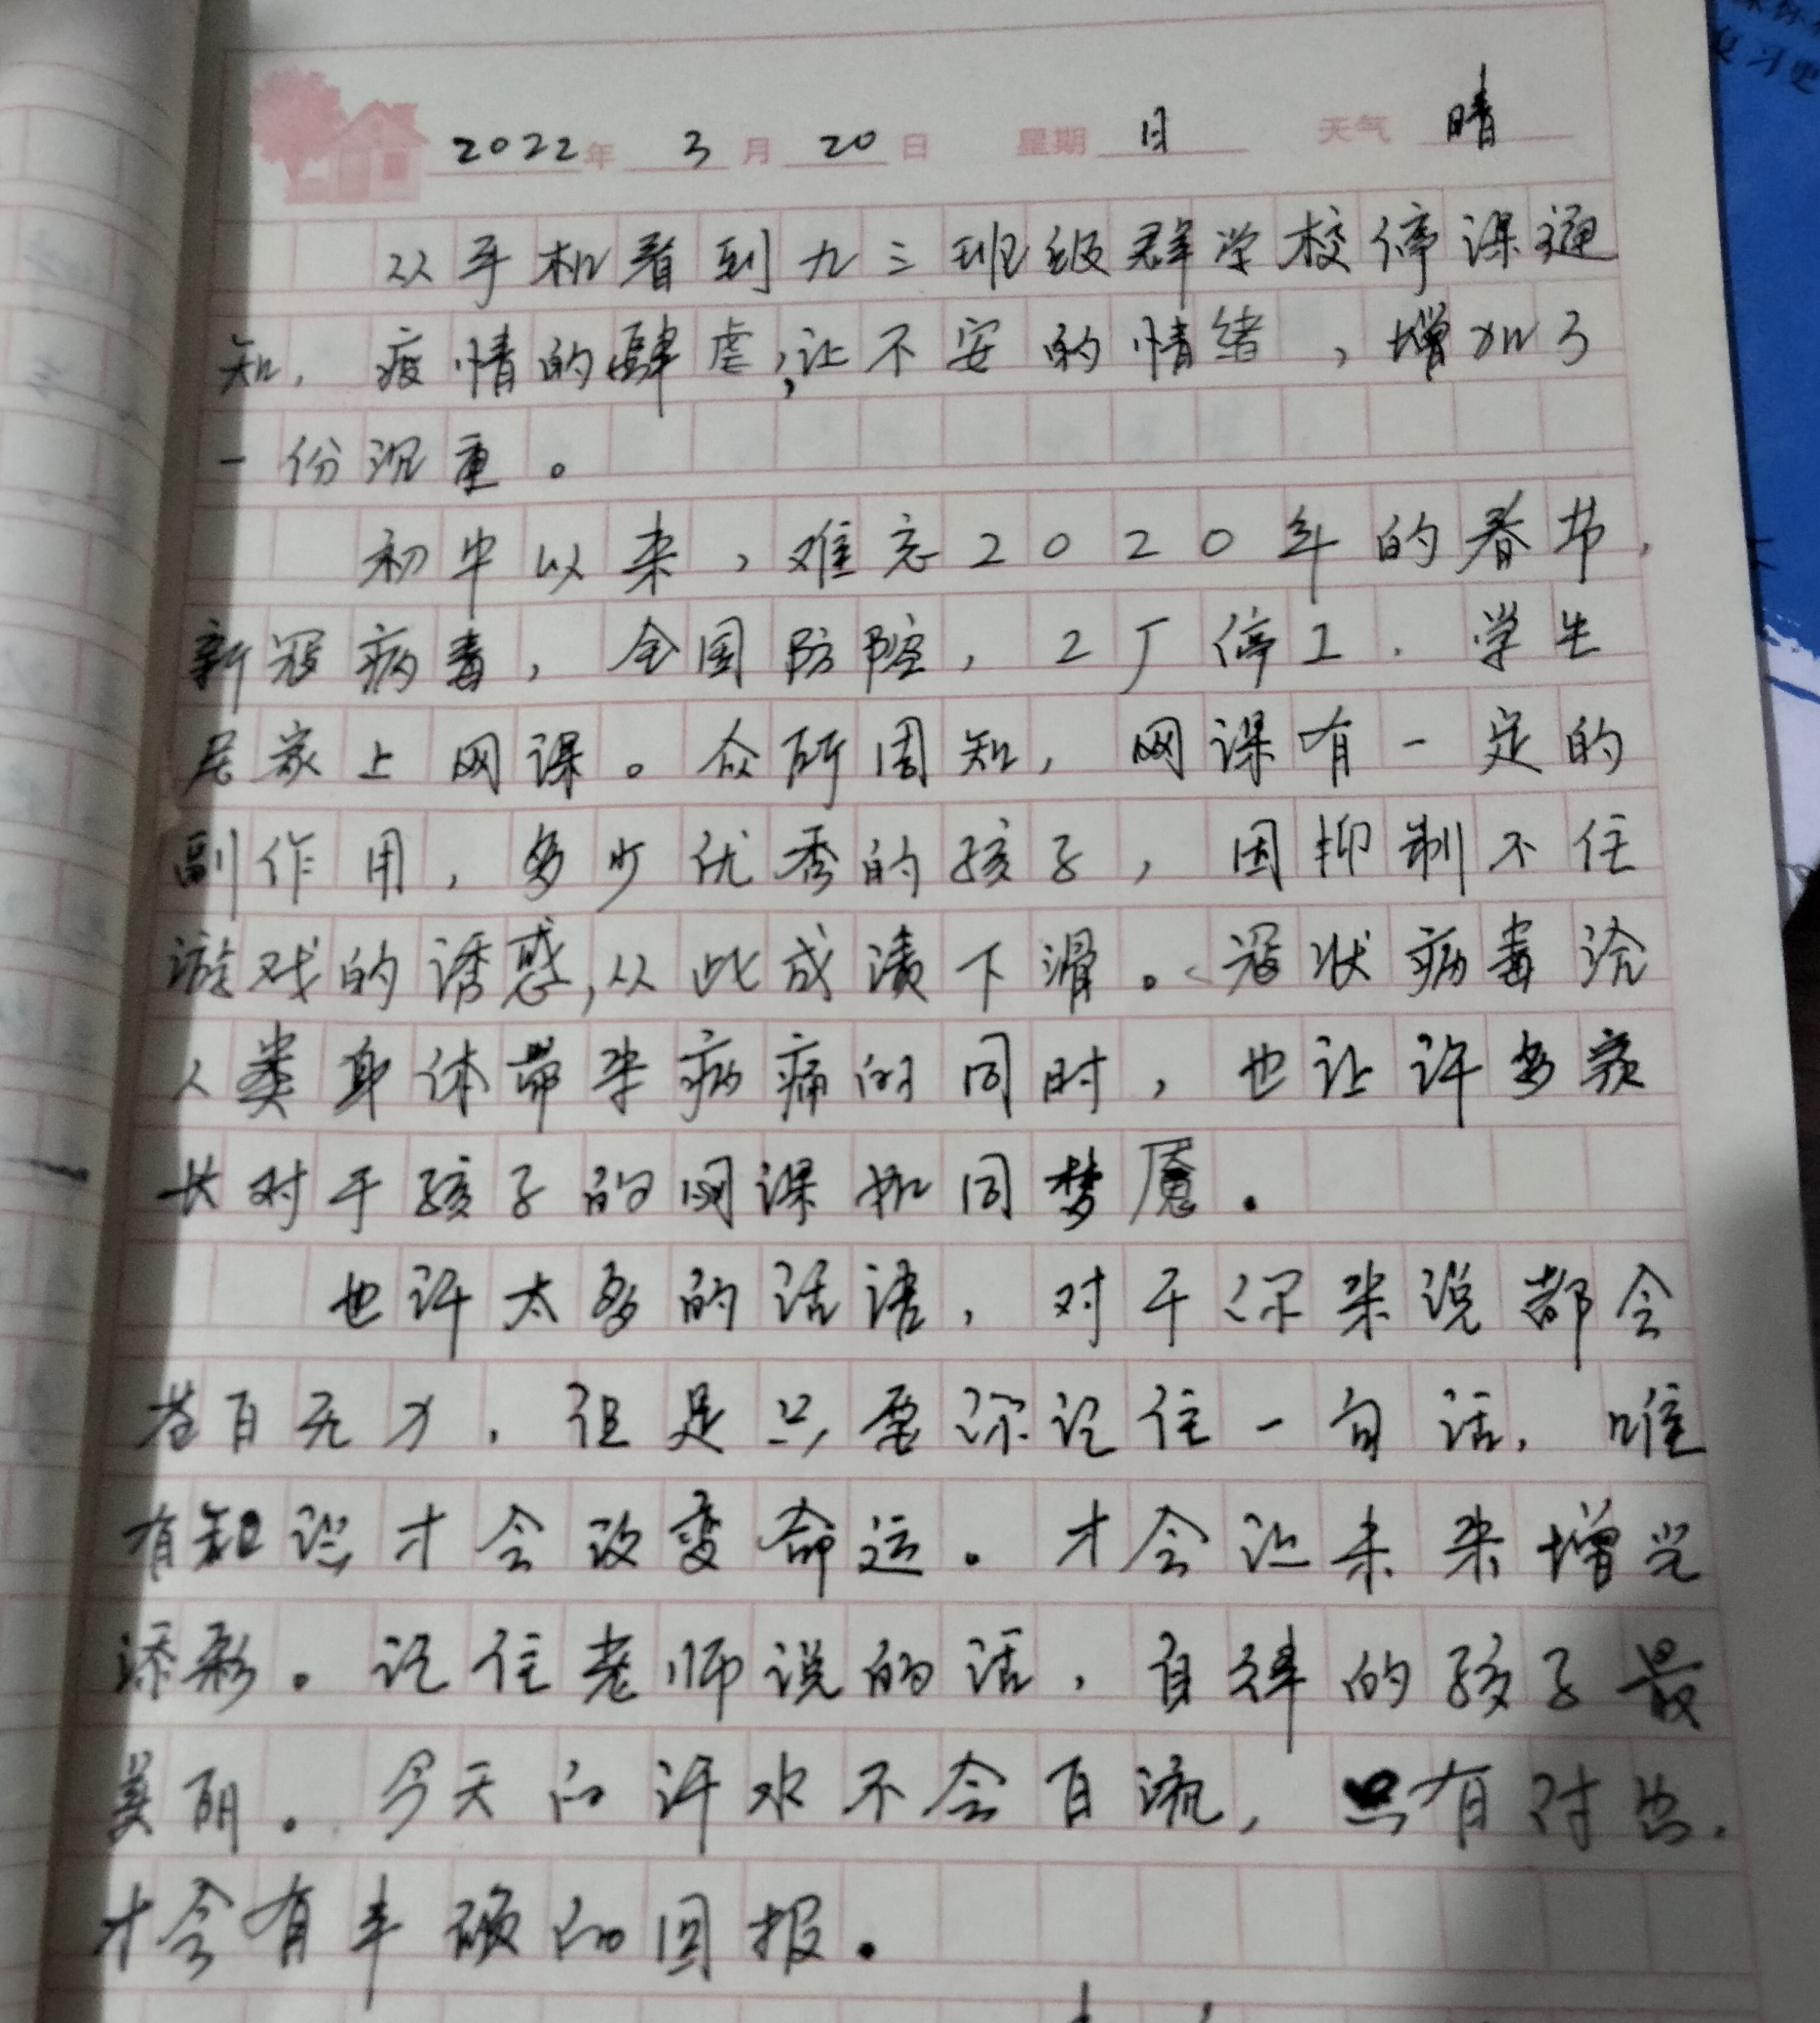 2022年 3月 20日 星期 日 天气 晴
从手机看到九三班级群学校停课通
知，疫情的肆虐，让不安的情绪，增加了
一份沉重。
初中以来，难忘2020年的春节，
新冠病毒，全国防控，工厂停工．学生
居家上网课。众所周知，网课有一定的
副作用，多少优秀的孩子，因抑制不住
游戏的诱惑，从此成渍下滑。冠状病毒给
人类身体带来病痛的同时，也让许多家
长对于孩子的网课如同梦魇．
也许太多的话语，对于你来说都会
苍白无力．但是只要你记住一句话．唯
有知识才会改变命运。才会让未来增光
添彩。记住老师说的话，自律的孩子最
美丽。今天的汗水不会白流，只有付出．
才会有丰硕的回报．